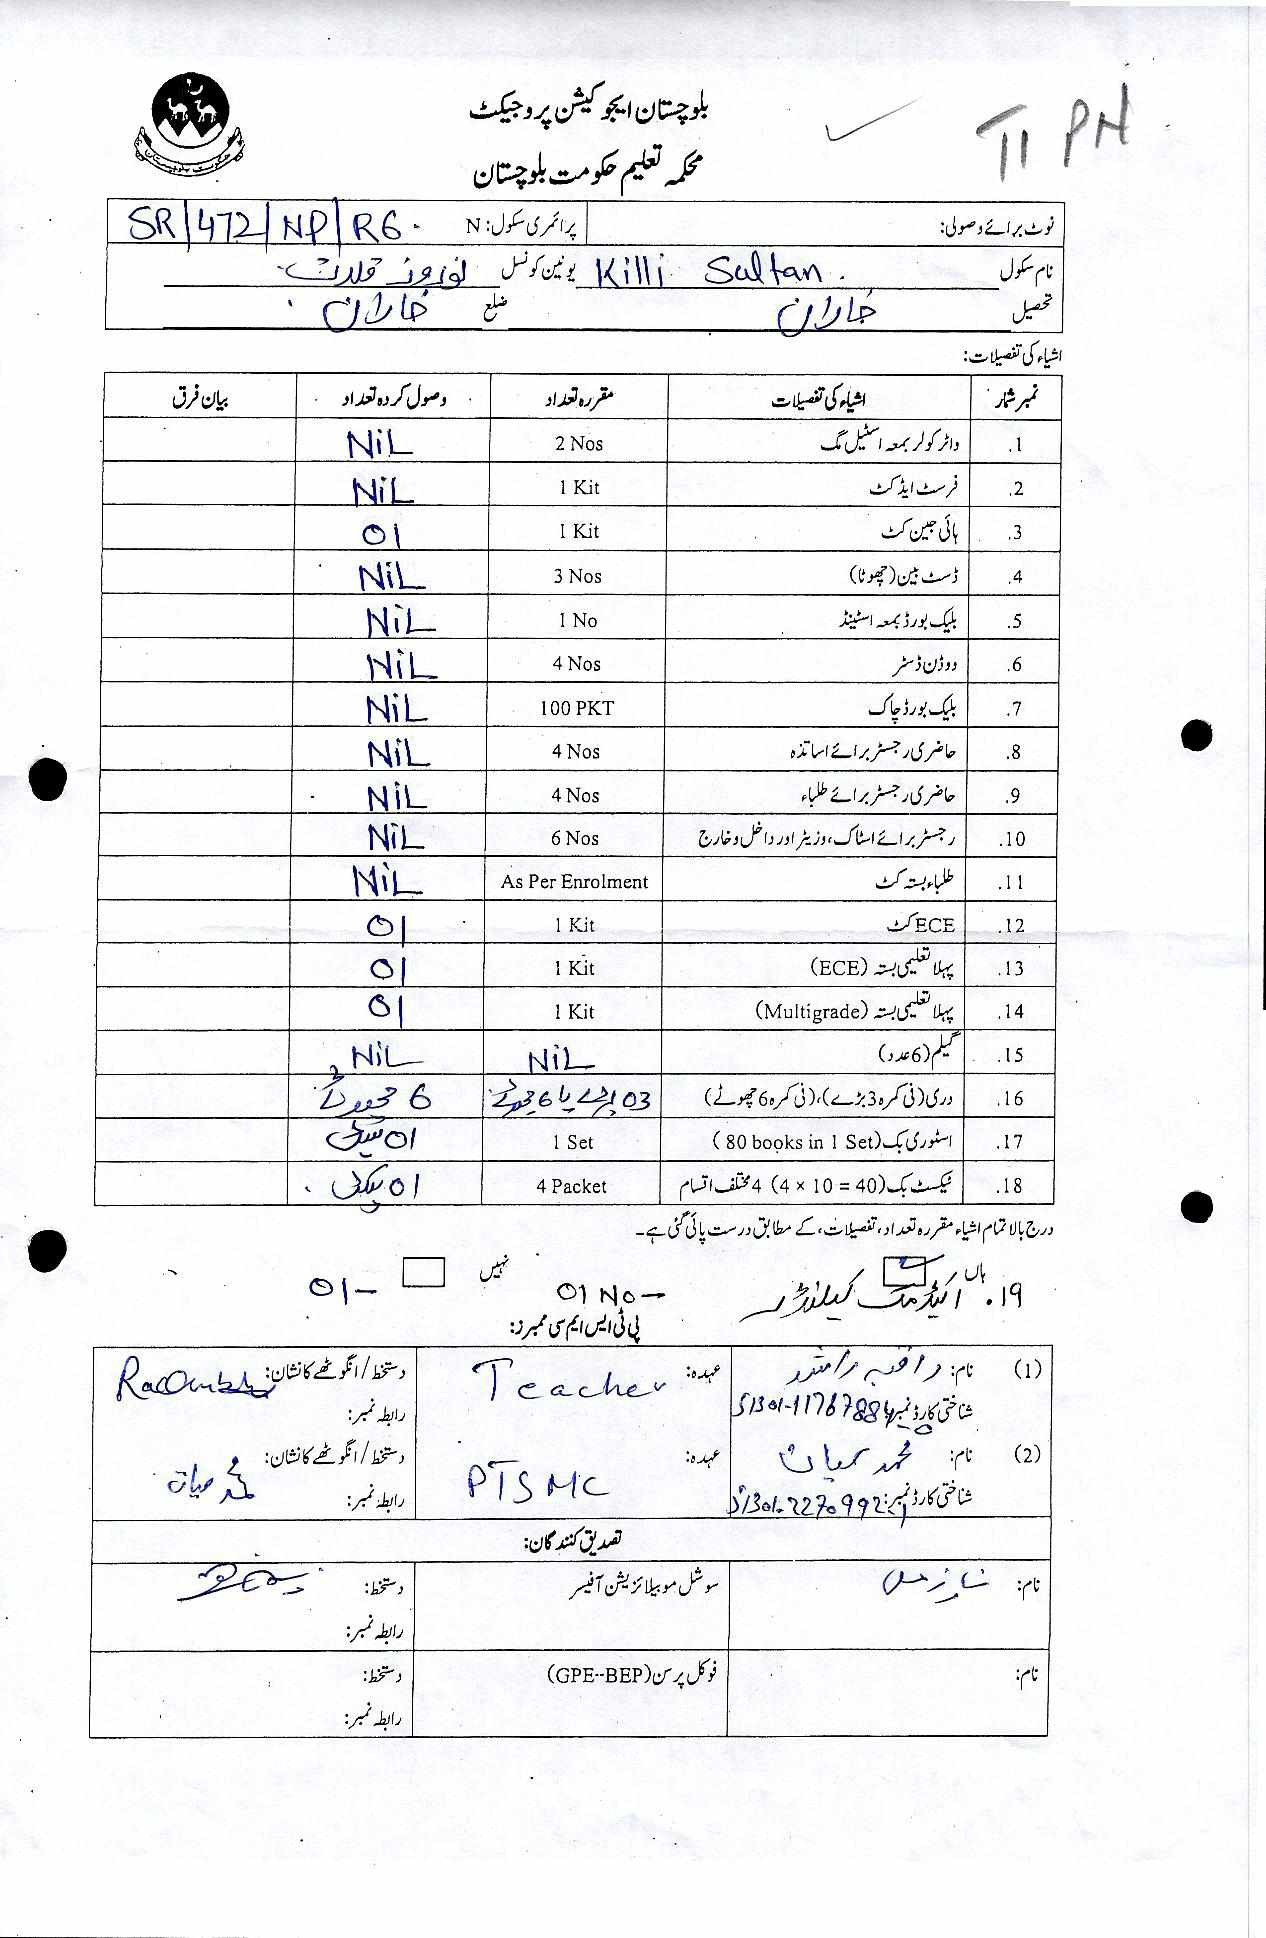 بلوچستان ایجوکیشن پروجیکٹ
محکمہ تعلیم حکومت بلوچستان
TI PN
نوٹ برائے وصولی: پرائمری سکول: N SR/472/NP/RG
نام سکول Killi Sultan یونین کونسل نوروز قلات
تحصیل خاران ضلع خاران
اشیاء کی تفصیلات:
نمبر شمار اشیاء کی تفصیلات مقررہ تعداد وصول کردہ تعداد بیان فرق
.1 واٹر کولر بمعہ اسٹیل مگ 2 Nos NiL
.2 فرسٹ ایڈ کٹ 1 Kit NiL
.3 ہائی جین کٹ 1 Kit 01
.4 ڈسٹ بین (چھوٹا) 3 Nos NiL
.5 بلیک بورڈ بمعہ اسٹینڈ 1 No NiL
.6 ووڈن ڈسٹر 4 Nos NiL
.7 بلیک بورڈ چاک 100 PKT NiL
.8 حاضری رجسٹر برائے اساتذہ 4 Nos NiL
.9 حاضری رجسٹر برائے طلباء 4 Nos NiL
.10 رجسٹر برائے اسٹاک، وزیٹر اور داخل و خارج 6 Nos NiL
.11 طلباء بستہ کٹ As Per Enrolment NiL
.12 ECE کٹ 1 Kit 01
.13 پہلا تعلیمی بستہ (ECE) 1 Kit 01
.14 پہلا تعلیمی بستہ (Multigrade) 1 Kit 01
.15 گیم (6 عدد) NiL NiL
.16 دری (فی کمرہ 3 بڑے)، (فی کمرہ 6 چھوٹے) 03 بڑے یا 6 چھوٹے 6 چھوٹے
.17 اسٹوری بک (80 books in 1 Set) 1 Set 01 سیٹ
.18 ٹیکسٹ بک (4 × 10 = 40) 4 مختلف اقسام 4 Packet 01 پیکٹ
درج بالا تمام اشیاء مقررہ تعداد، تفصیلات، کے مطابق درست پائی گئی ہے۔
ہاں نہیں
۱۹. اکیڈمک کیلنڈر 01 No 01
پی ٹی ایس ایم سی ممبرز:
(1) نام: راشد عہدہ: Teacher دستخط/انگوٹھے کا نشان:
شناختی کارڈ نمبر: رابطہ نمبر:
(2) نام: محمد حیات عہدہ: PTSMC دستخط/انگوٹھے کا نشان: محمد حیات
شناختی کارڈ نمبر: 51301-2270992-1 رابطہ نمبر:
تصدیق کنندگان:
نام: سوشل موبیلائزیشن آفیسر دستخط:
رابطہ نمبر:
نام: فوکل پرسن (GPE--BEP) دستخط:
رابطہ نمبر: